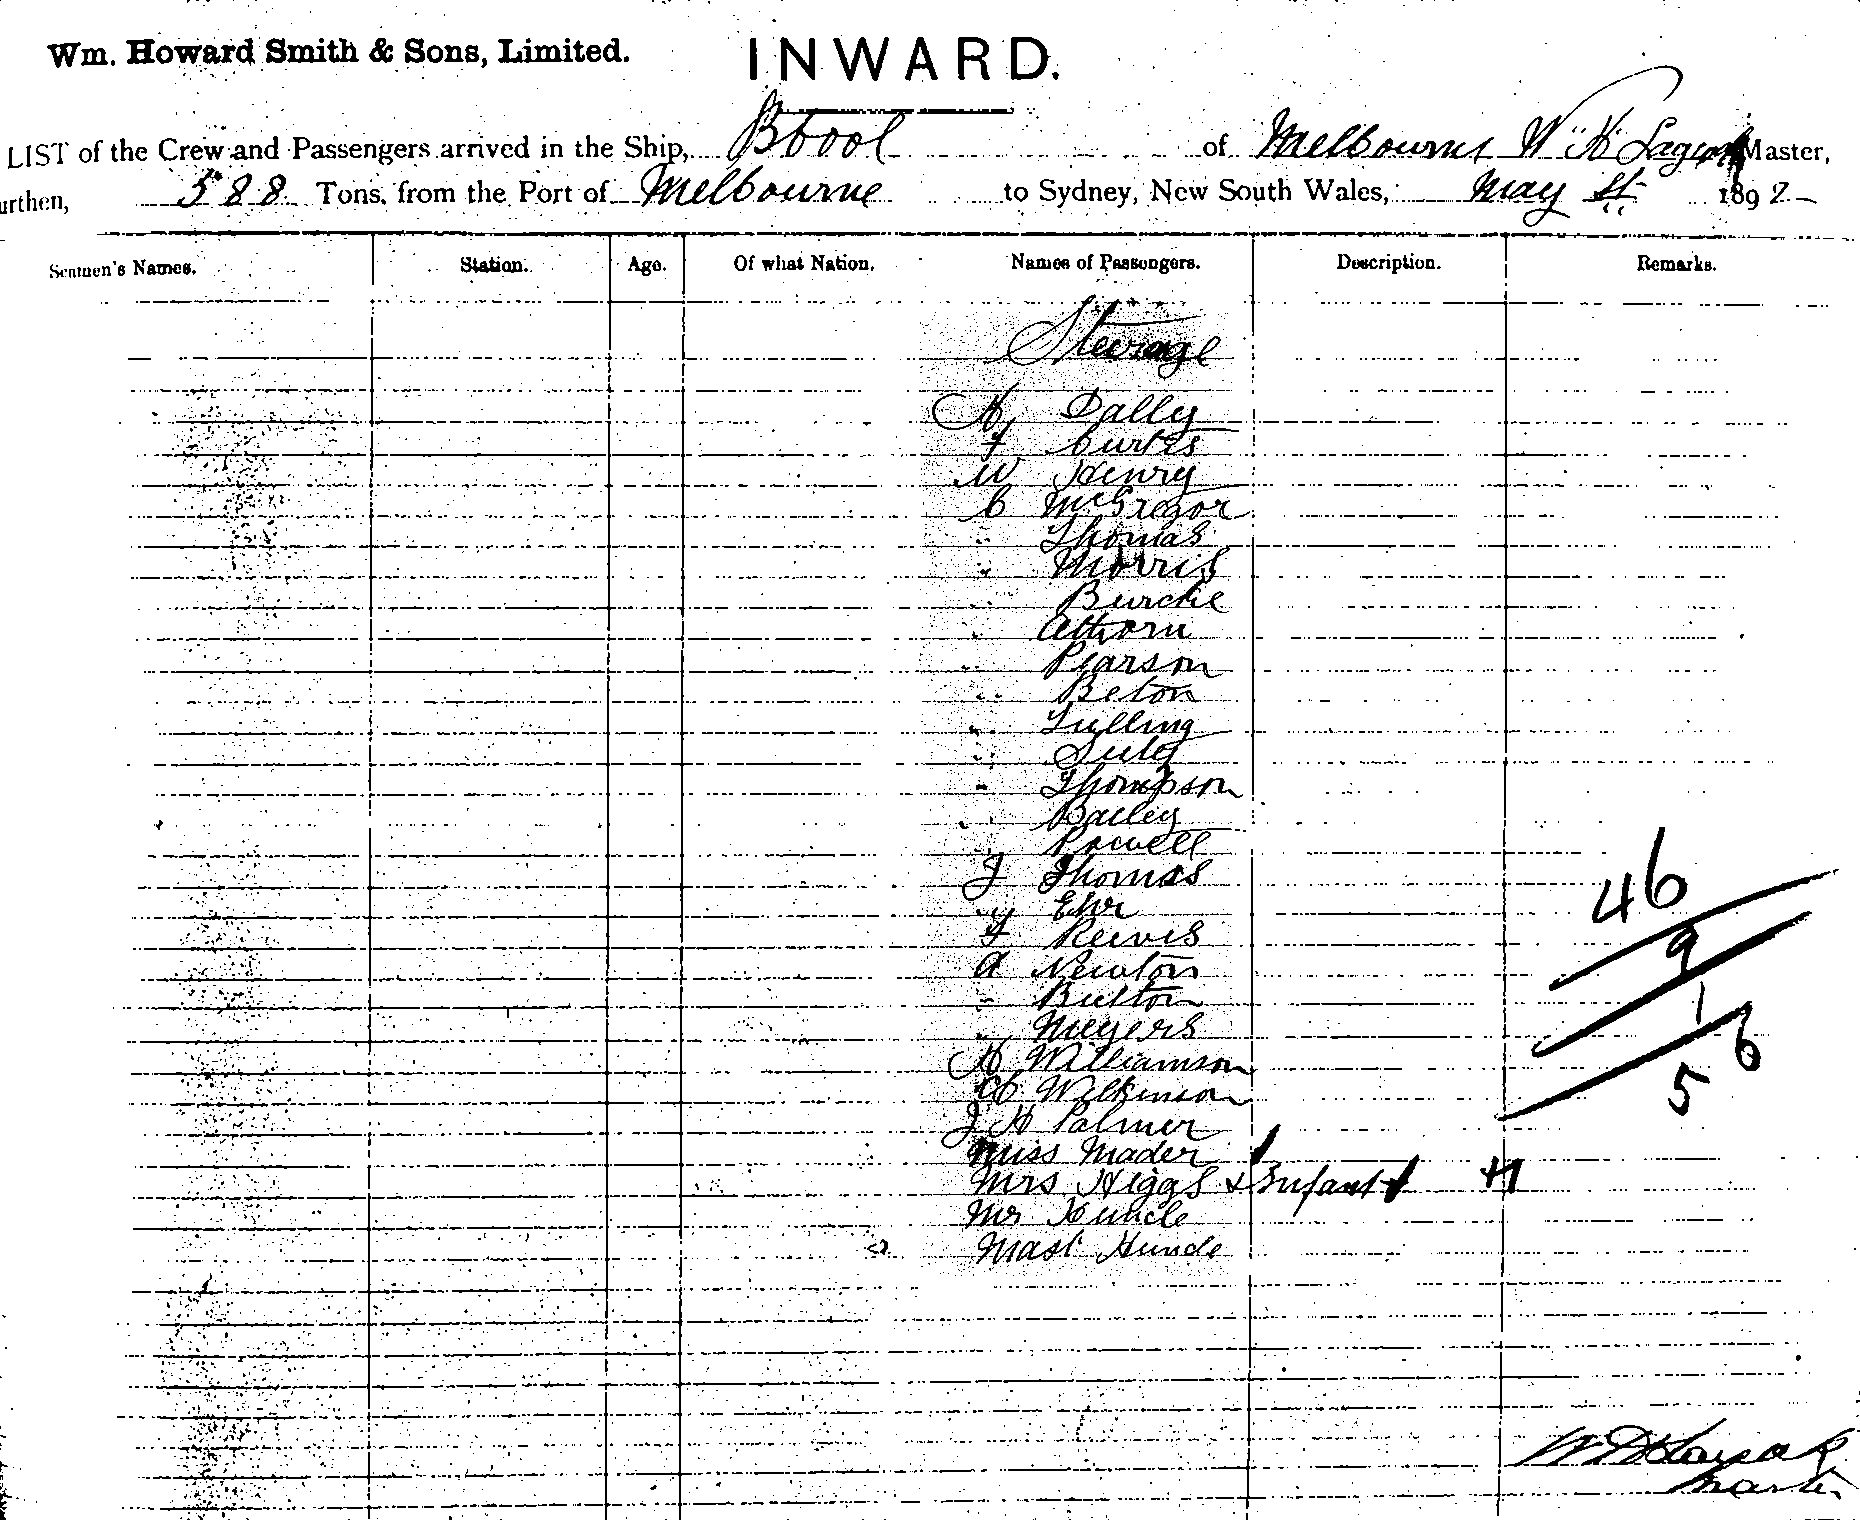 Wm. Howard Smith & Sons, Limited. INWARD.
LIST of the Crew and Passengers arrived in the Ship, Bbool of Melbourne W. K. Master,
urthen, 588 Tons, from the Port of Melbourne to Sydney, New South Wales, May 1st 1892
Seamen's Names. Station. Age. Of what Nation. Names of Passengers. Description. Remarks.
Steerage
H Dally
F Curtis
W Henry
C McGregor
" Thomas
" Morris
" Burckie
" Athorn
" Pearson
" Beton
" Tulling
" Suley
" Thompson
" Bailey
" Powell
J Thomas
" Ehr
F Reeves
A Newton
" Button
" Meyers
H Williamson
Ch Wilkinson
J H Palmer
Miss Mader
Mrs Higgs & Infant
Mr Huncle
Mast Huncle
46
9
1
56